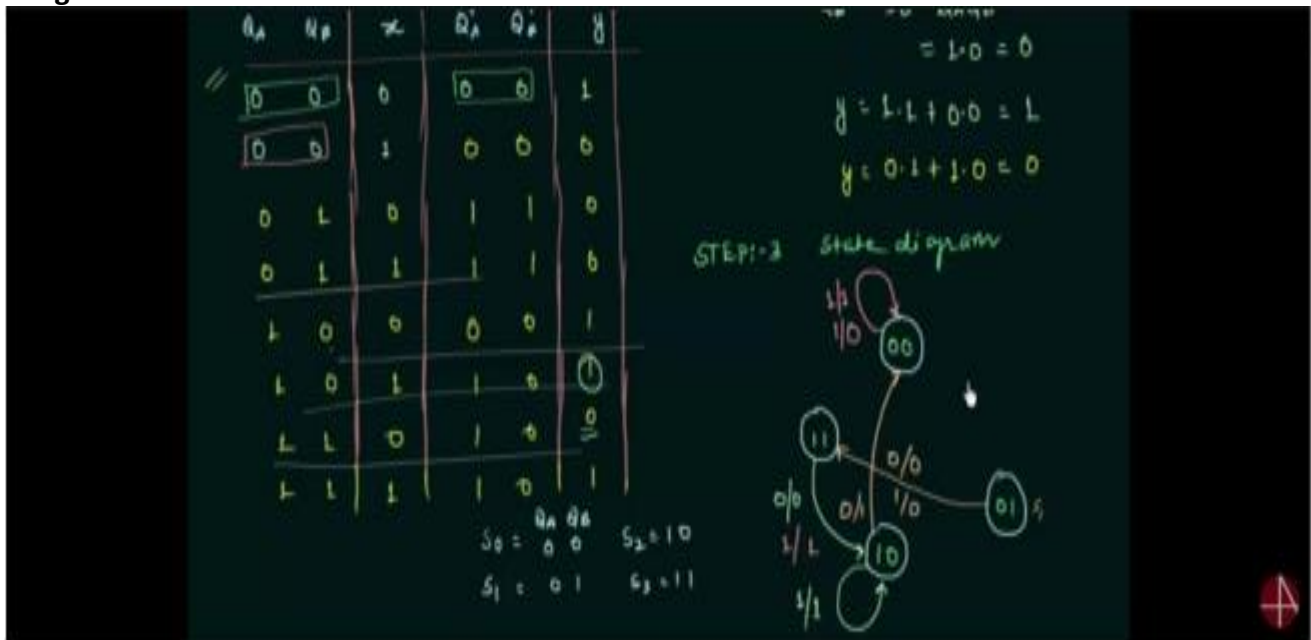 QA QB x Q'A Q'B y
0 0 0 0 0 1
0 0 1 0 0 0
0 1 0 1 1 0
0 1 1 1 1 0
1 0 0 0 0 1
1 0 1 1 0 1
1 1 0 1 0 0
1 1 1 1 0 1
QA QB
S0 = 0 0 S2 = 10
S1 = 0 1 S3 = 11
= 1·0 = 0
y = 1·1 + 0·0 = 1
y = 0·1 + 1·0 = 0
STEP:-3 State diagram
1/1
1/0
00
11
0/0
1/0
01 S1
0/0
1/1
0/1
10
1/1